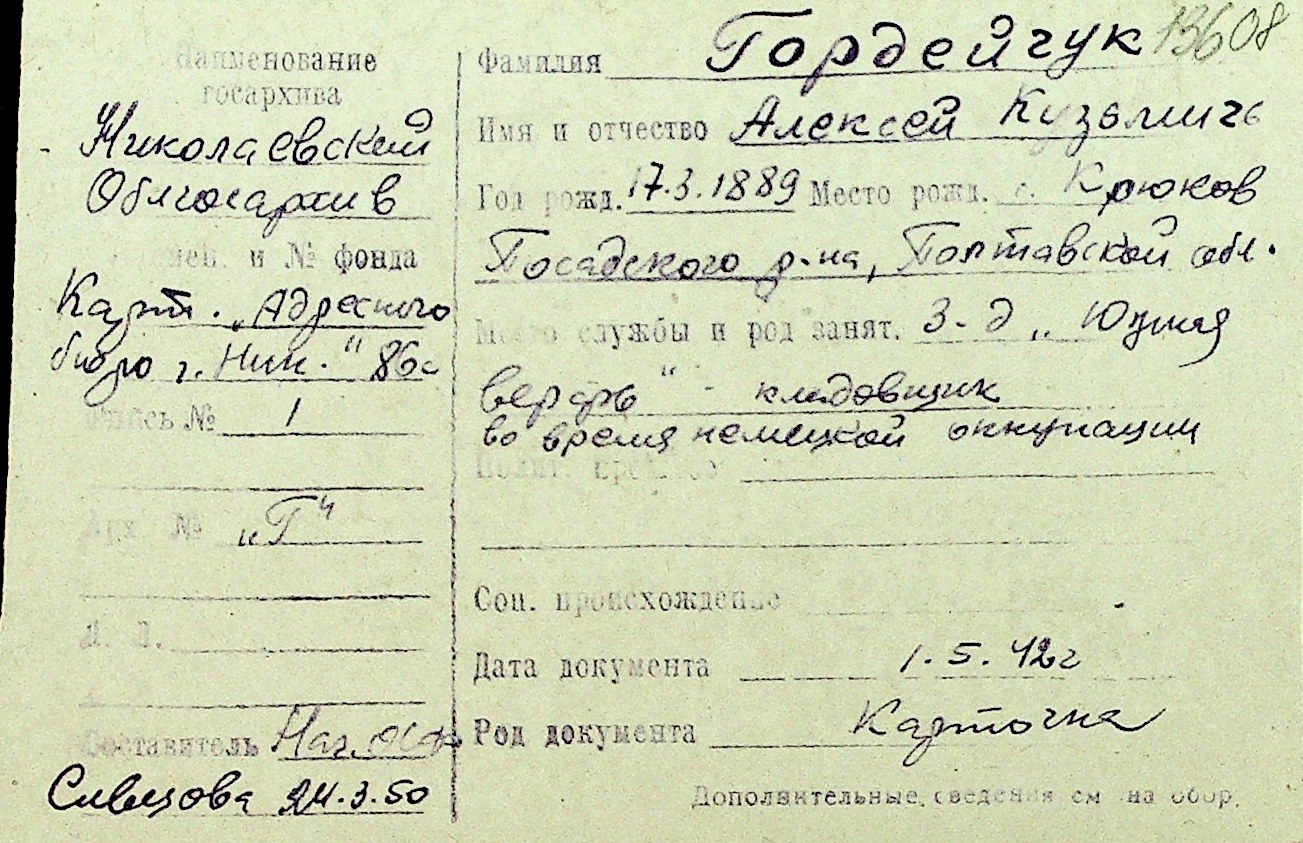 Гордейчук 13608
Наименование
госархива
Николаевский
Облгосархив
и № фонда
Карт. „Адресного
бюро г. Ник.“ 86с
Опись № 1
Арх. № „Г“
Л. Л.
Составитель Нач.
24.3.50
Фамилия
Имя и отчество Алексей Кузьмичь
Год рожд. 17.3.1889 Место рожд. с. Крюков
Посадского р-на, Полтавской обл.
Место службы и род занят. З-д „Южная
верфь“ - кладовщик
во время немецкой оккупации
Соц. происхождение
Дата документа 1.5.42г
Род документа Карточка
Дополнительные сведения см на обор.